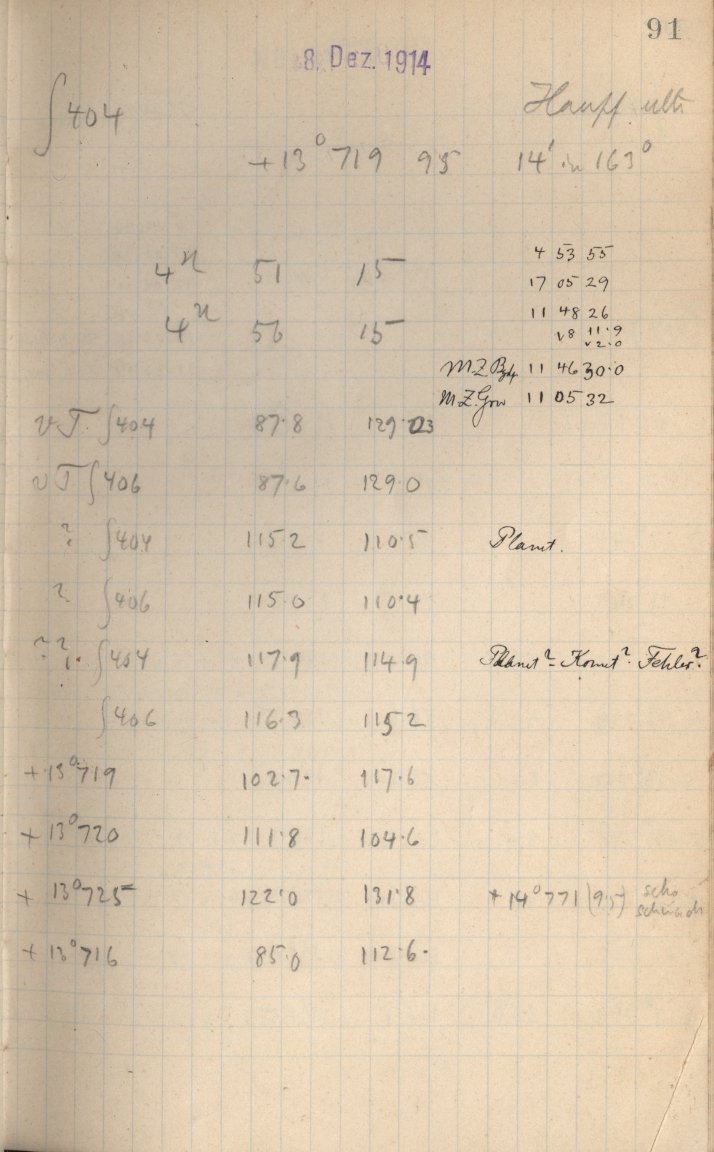 91
8. Dez. 1914
∫404 Hauff ultr
+13° 719 95 14' in 163°
4 53 55
4ⁿ 51 15 17 05 29
11 48 26
4ⁿ 56 15 v8 11·9
v2·0
MZ Bgdf 11 46 30·0
MZ Grw 11 05 32
vT. ∫404 87·8
vT ∫406 87·6 129·0
? ∫404 115·2 110·5 Planet.
? ∫406 115·0 110·4
? ?. ∫404 117·9 114·9 Planet? - Komet? Fehler?
∫406 116·3 115·2
+13°719 102·7· 117·6
+13°720 111·8 104·6
+13°725 122·0 131·8 +14°771 (9·5)
+13°716 85·0 112·6·